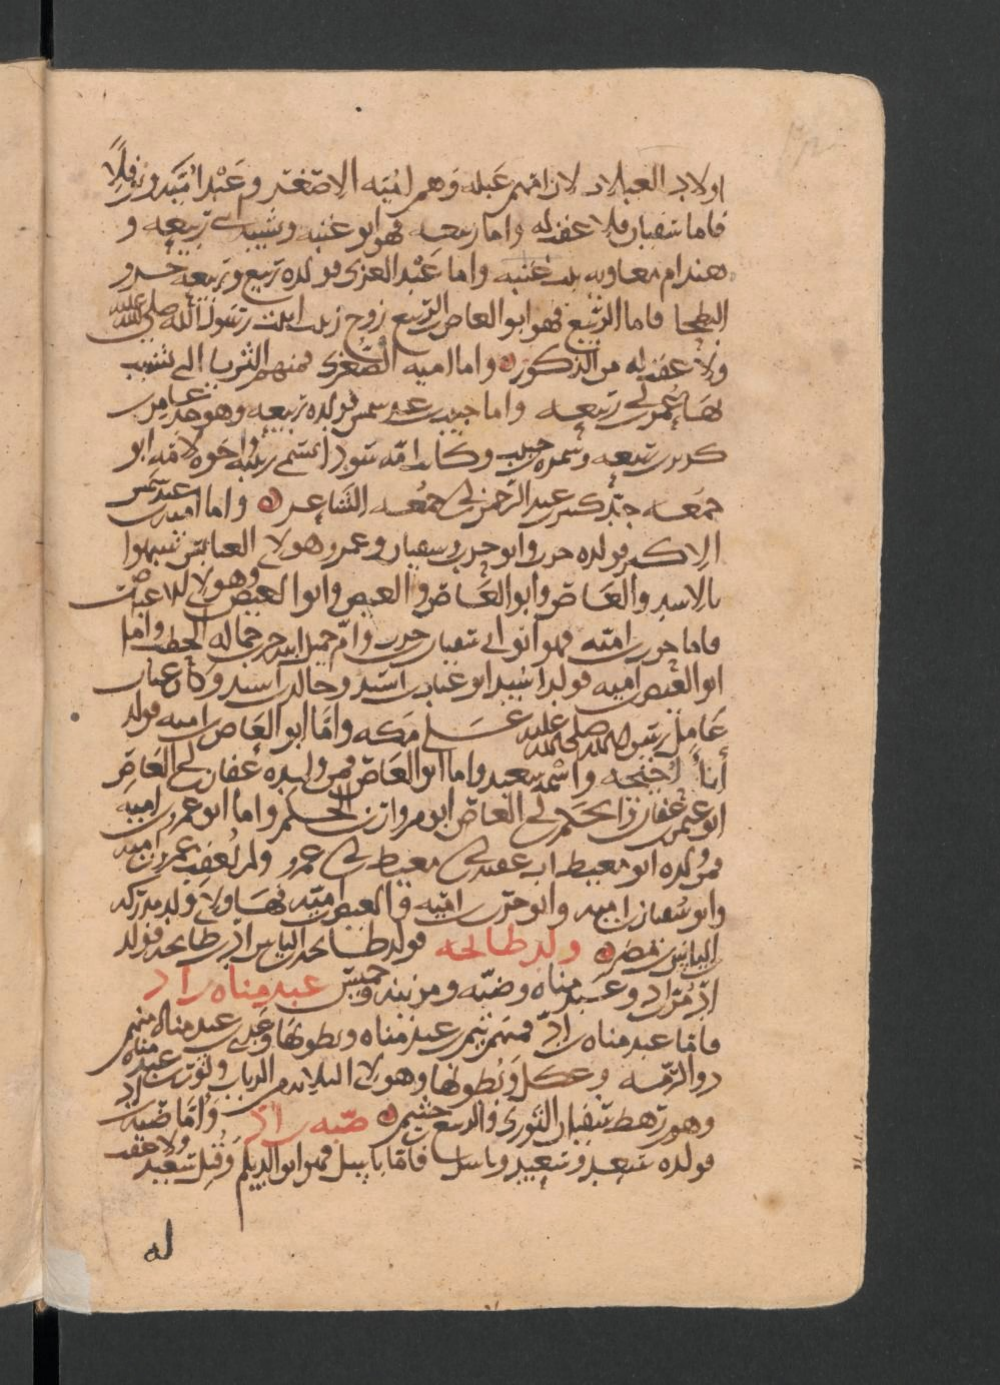 اولاد العبلات لان امهم عبله وهم اميه الاصغر وعبد اميه ونوفلا
فاما سفيان فلا عقب له واما ربيعه فهو ابو عتبه وشيبه ابى ربيعه و
هند ام معاويه بنت عتبه واما عبد العزى فولده ربيع وربيعه جرو
البطحا فاما الربيع فهو ابو العاص الربيع زوج زينب ابنت رسول الله صلى الله عليه
ولا عقب له من الذكور واما اميه الصغرى فمنهم الثريا التى شبب
بها عمر بن ربيعه واما حبيب بن عبد شمس فولده ربيعه وهو جد عامر بن
كريز بن ربيعه وسمره بن حبيب وكانت امه واخوه لامه ابو
جمعه جد كثير عبد الرحمن بن جمعه الشاعر واما اميه بن عبد شمس
الاكبر فولده حرب وابو حرب وسفيان وعمرو هولاى العنابس شبهوا
بالاسد والعاص وابو العاص والعيص وابو العيص وهولاى الاعياص
فاما حرب بن اميه فهو ابو ابى سفيان بن حرب وام جميل ابنه حرب حماله الحطب واما
ابو العيص بن اميه فولد اسيد ابو عتاب بن اسيد وخالد بن اسيد وكان عتاب
عامل رسول الله صلى الله عليه على مكه واما ابو العاص بن اميه فولد
ابا احيحه واسمه سعيد واما ابو العاص فمن ولده عفان بن ابى العاص
ابو عثمن بن عفان والحكم بن ابى العاص ابو مروان بن الحكم واما ابو عمرو بن اميه
فمن ولده ابو معيط ابو عقبه بن معيط بن عمرو ولم يعقب عمرو بن اميه
وابو سفيان بن اميه وابو حرب بن اميه والعيص بن اميه فهاولاى ولد مدركه
الياس بن مضر ولد طابخه فولد طابخه بن الياس اد بن طابخه فولد
اد مر بن اد وعبد مناه وضبه ومزينه وحميس عبد مناه بن اد
فاما عبد مناه بن اد فمنهم تيم بن عبد مناه وبطونها وعدى بن عبد مناه منهم
ذو الرمه وعكل وبطونها وهولاى الثلاثه هم الرباب وثور بن عبد مناه
وهو رهط سفيان الثورى والربيع بن خثيم ضبه بن اد واما ضبه بن اد
فولده سعد وسعيد وباسل فاما باسل فهو ابو الديلم وقتل سعيد ولا عقب
له